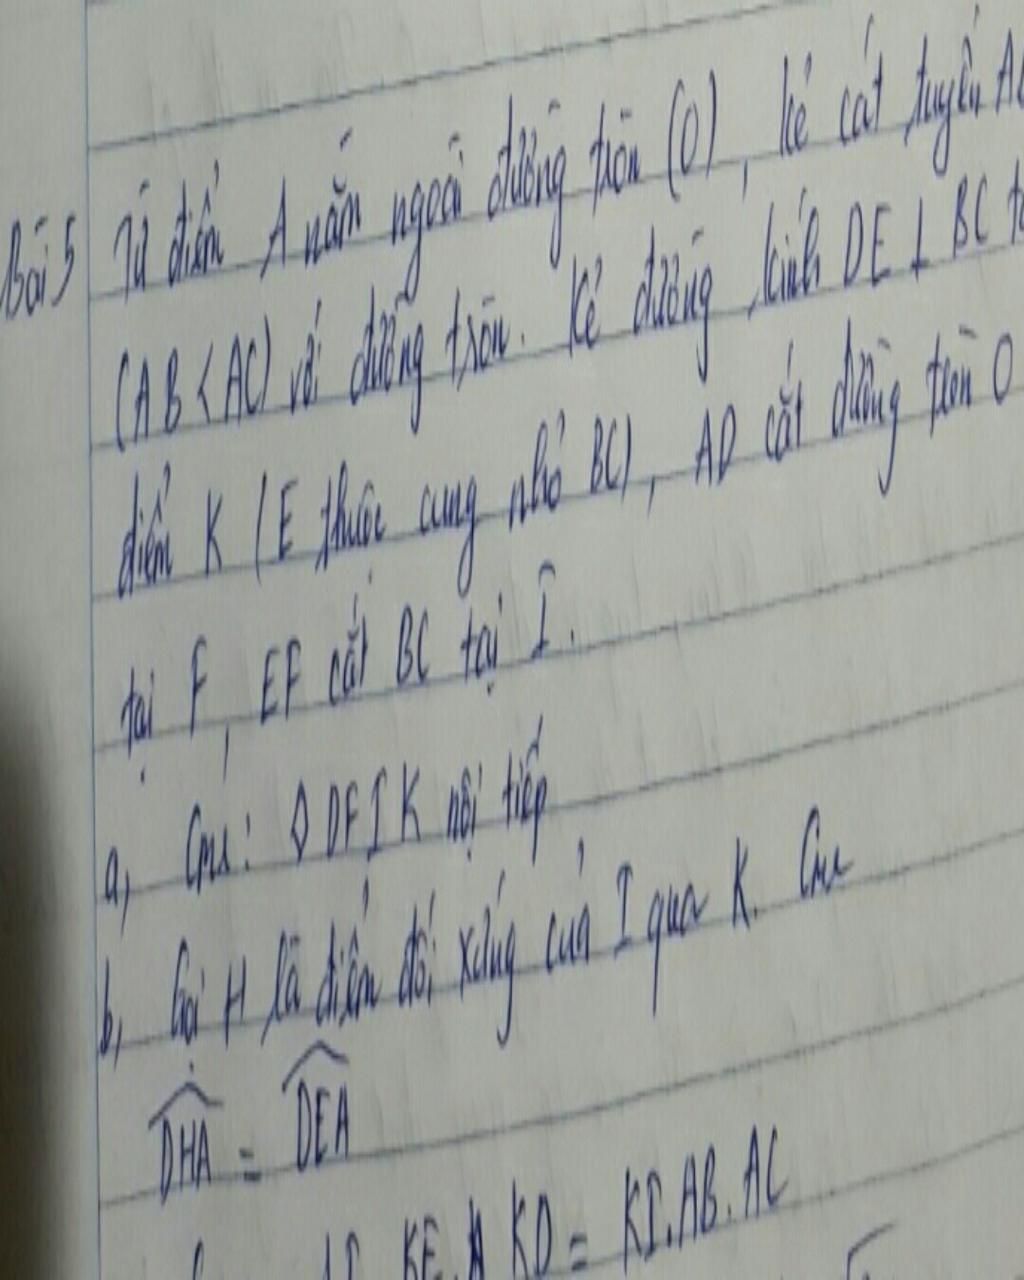 Bài 5 Từ điểm A nằm ngoài đường tròn (O), kẻ cát tuyến
(AB < AC) với đường tròn. Kẻ đường kính DE ⊥ BC
điểm K (E thuộc cung nhỏ BC), AD cắt đường tròn O
tại F, EF cắt BC tại I.
a, Cm: ◊ DFIK nội tiếp
b, Gọi H là điểm đối xứng của I qua K. Cm
\widehat{DHA} = \widehat{DEA}
KE. KD = KI.AB.AC